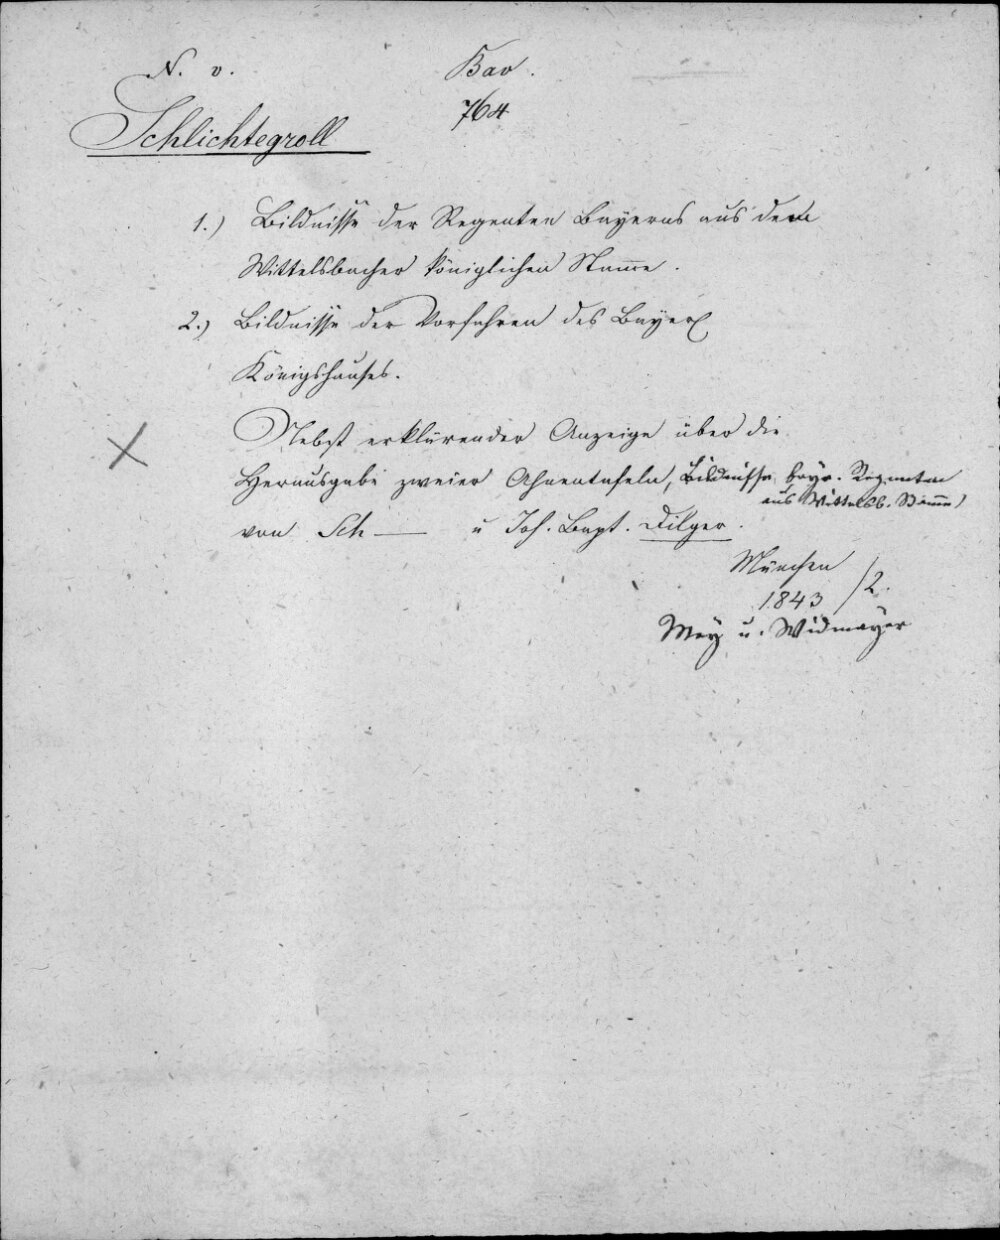 N. v. Bav.
Schlichtegroll 764
1.) Bildnisse der Regenten Bayerns aus dem
Wittelsbacher königlichen Stamme.
2.) Bildnisse der Vorfahren des Bayer.
Königshauses.
Nebst erklärender Anzeige über die
Herausgabe zweier Ahnentafeln, Bildnisse bayr. Regenten
aus Wittelsb. Stamme)
von Sch— u Joh. Bapt. Dilger.
München
1843 /2.
Mey u. Widmayer